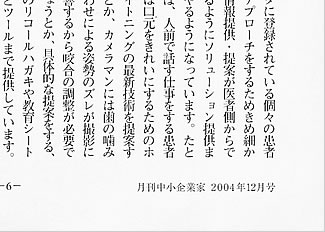 に登録されている個々の患者
アプローチをするためきめ細か
るようにソリューション提供ま
情報提供・提案が医者側からで
やるようになっています。たと
は、人前で話す仕事をする患者
は口元をきれいにするためのホ
イトニングの最新技術を提案す
とか、カメラマンには歯の噛み
わせによる姿勢のズレが撮影に
響するから咬合の調整が必要で
ようとか、具体的な提案をする、
のリコールハガキや教育シート
とツールまで提供しています。
月刊中小企業家 2004年12月号
−6−